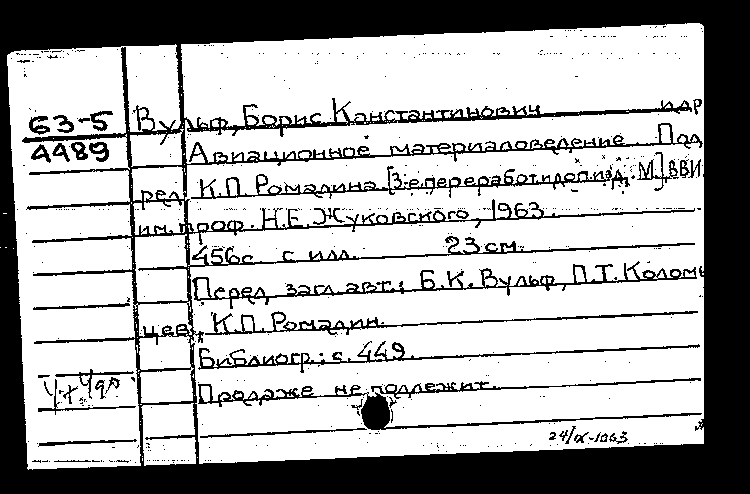 63-5
4489
Вульф, Борис Константинович и др
Авиационное материаловедение. Под
ред. К.П. Ромадина. [3-е перераб. и доп. изд. М.] ВВИ
им. проф. Н.Е. Жуковского, 1963.
456 с. с илл. 23 см.
Перед загл. авт.: Б.К. Вульф, П.Т. Колом
цев, К.П. Ромадин.
Библиогр.: с. 449.
Продаже не подлежит.
24/IX-1963